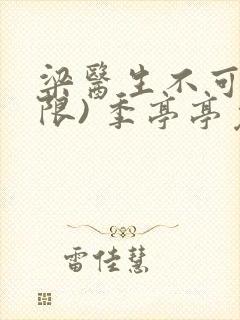 梁醫生不可
限) 季亭亭
雷佳慧